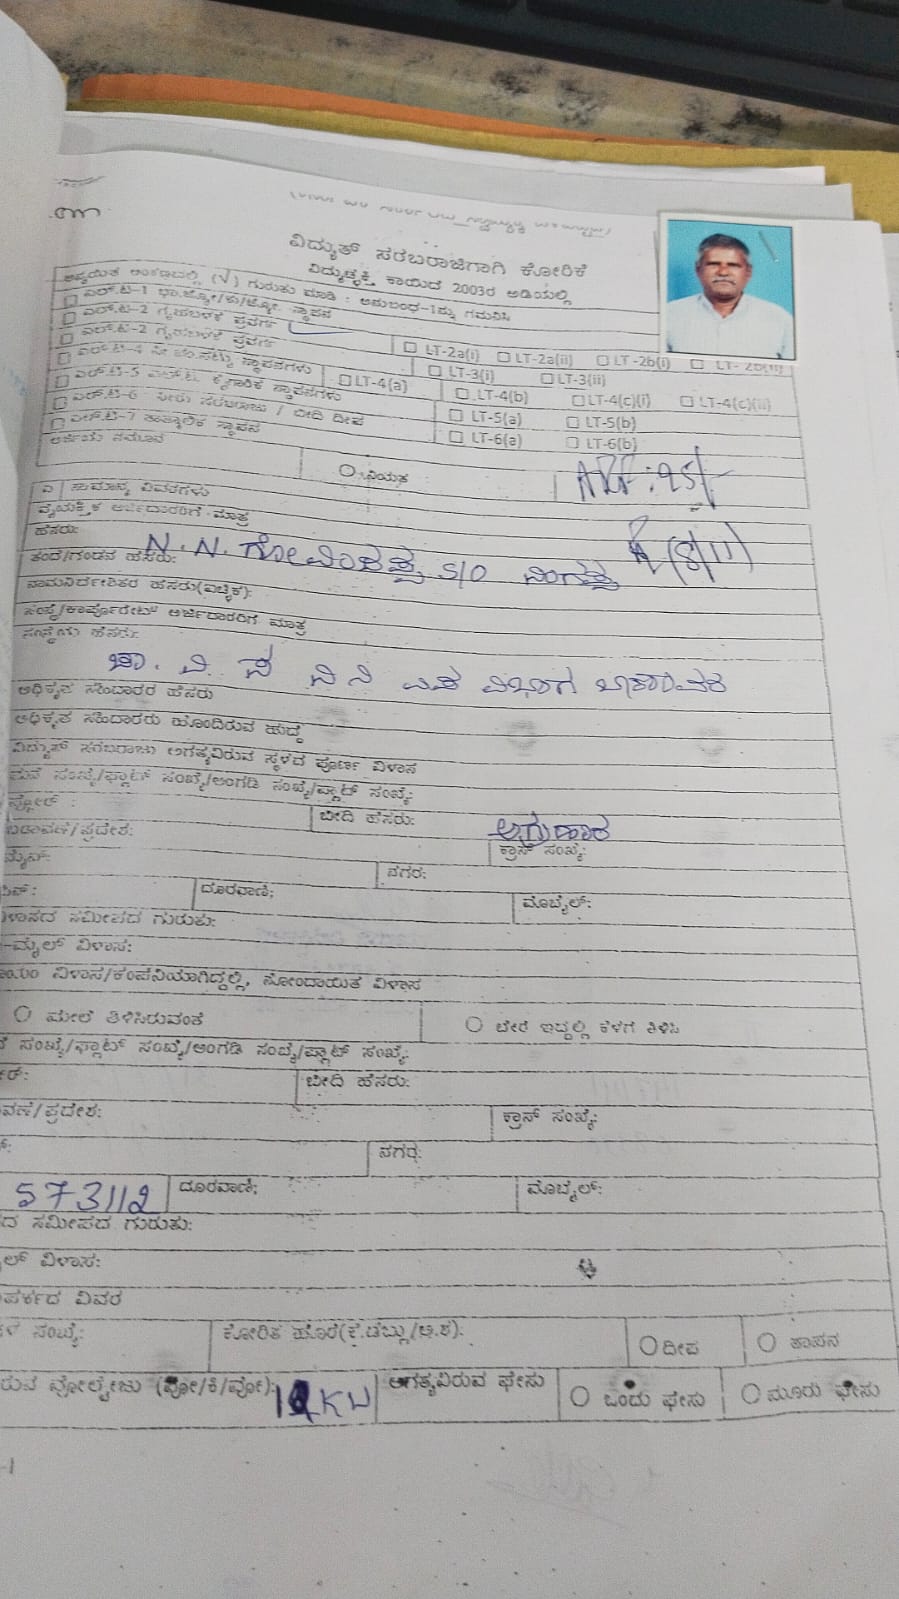 ವಿದ್ಯುತ್ ಸರಬರಾಜಿಗಾಗಿ ಕೋರಿಕೆ
ವಿದ್ಯುಚ್ಛಕ್ತಿ ಕಾಯಿದೆ 2003ರ ಅಡಿಯಲ್ಲಿ
(√) ಗುರುತು ಮಾಡಿ : ಅನುಬಂಧ-1ನ್ನು ಗಮನಿಸಿ
ಎಲ್.ಟಿ-1 ಭಾ.ಜ್ಯೋ/ಕು/ಜ್ಯೋ. ಸ್ಥಾಪನ
ಎಲ್.ಟಿ-2 ಗೃಹಬಳಕೆ ಪ್ರವರ್ಗ
ಎಲ್.ಟಿ-2 ಗೃಹಬಳಕೆ ಪ್ರವರ್ಗ LT-2a(i) LT-2a(ii) LT-2b(i) LT-2b(ii)
LT-3(i) LT-3(ii)
ಎಲ್.ಟಿ-4 ನೀ.ಪಂ.ಸೆಟ್ಟು ಸ್ಥಾಪನಗಳು LT-4(a) LT-4(b) LT-4(c)(i) LT-4(c)(ii)
ಎಲ್.ಟಿ-5 ಎಲ್.ಟಿ. ಕೈಗಾರಿಕೆ ಸ್ಥಾಪನಗಳು LT-5(a) LT-5(b)
ಎಲ್.ಟಿ-6 ನೀರು ಸರಬರಾಜು / ಬೀದಿ ದೀಪ LT-6(a) LT-6(b)
ಎಲ್.ಟಿ-7 ತಾತ್ಕಾಲಿಕ ಸ್ಥಾಪನ
ಅರ್ಜಿಯ ನಮೂನೆ
ನಿಯತ
ಎ ಸಾಮಾನ್ಯ ವಿವರಗಳು
ವೈಯಕ್ತಿಕ ಅರ್ಜಿದಾರರಿಗೆ ಮಾತ್ರ
ಹೆಸರು: N.N. ಗೋವಿಂದಪ್ಪ S/O ನಿಂಗಪ್ಪ
ತಂದೆ/ಗಂಡನ ಹೆಸರು:
ನಾಮನಿರ್ದೇಶಿತರ ಹೆಸರು(ಐಚ್ಛಿಕ):
ಸಂಸ್ಥೆ/ಕಾರ್ಪೊರೇಟ್ ಅರ್ಜಿದಾರರಿಗೆ ಮಾತ್ರ
ಸಂಸ್ಥೆಯ ಹೆಸರು:
ಅಧಿಕೃತ ಸಹಿದಾರರ ಹೆಸರು
ಅಧಿಕೃತ ಸಹಿದಾರರು ಹೊಂದಿರುವ ಹುದ್ದೆ
ವಿದ್ಯುತ್ ಸರಬರಾಜು ಅಗತ್ಯವಿರುವ ಸ್ಥಳದ ಪೂರ್ಣ ವಿಳಾಸ
ಮನೆ ಸಂಖ್ಯೆ/ಫ್ಲಾಟ್ ಸಂಖ್ಯೆ/ಅಂಗಡಿ ಸಂಖ್ಯೆ/ಪ್ಲಾಟ್ ಸಂಖ್ಯೆ:
ಫ್ಲೋರ್ : ಬೀದಿ ಹೆಸರು: ಅಗ್ರಹಾರ
ಬಡಾವಣೆ/ಪ್ರದೇಶ: ಕ್ರಾಸ್ ಸಂಖ್ಯೆ:
ಮೈನ್: ನಗರ:
ಪಿನ್: ದೂರವಾಣಿ: ಮೊಬೈಲ್:
ವಿಳಾಸದ ಸಮೀಪದ ಗುರುತು:
-ಮೈಲ್ ವಿಳಾಸ:
ವಿಳಾಸ/ಕಂಪನಿಯಾಗಿದ್ದಲ್ಲಿ, ನೋಂದಾಯಿತ ವಿಳಾಸ
ಮೇಲೆ ತಿಳಿಸಿರುವಂತೆ ಬೇರೆ ಇದ್ದಲ್ಲಿ ಕೆಳಗೆ ತಿಳಿಸಿ
ಸಂಖ್ಯೆ/ಫ್ಲಾಟ್ ಸಂಖ್ಯೆ/ಅಂಗಡಿ ಸಂಖ್ಯೆ/ಪ್ಲಾಟ್ ಸಂಖ್ಯೆ:
ರ್: ಬೀದಿ ಹೆಸರು:
ವಣೆ/ಪ್ರದೇಶ: ಕ್ರಾಸ್ ಸಂಖ್ಯೆ:
ನಗರ:
573112 ದೂರವಾಣಿ: ಮೊಬೈಲ್:
ದ ಸಮೀಪದ ಗುರುತು:
ಲ್ ವಿಳಾಸ:
ಪರ್ಕದ ವಿವರ
ಸಂಖ್ಯೆ: ಕೋರಿತ ಹೊರೆ(ಕೆ.ಡಬ್ಲು/ಅ.ಶ): ದೀಪ ತಾಪನ
ರುವ ವೋಲ್ಟೇಜು (ವೋ/ಕಿ/ವೋ): KW ಅಗತ್ಯವಿರುವ ಫೇಸು ಒಂದು ಫೇಸು ಮೂರು ಫೇಸು